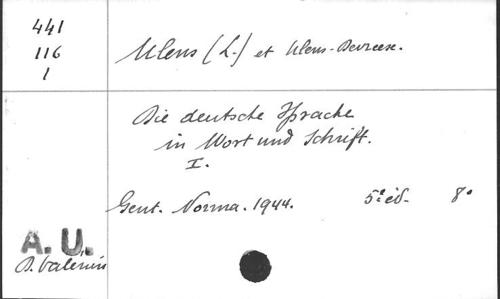 441
116
1
Ulens (L.) et Ulens-Devreese.
Die deutsche Sprache
in Wort und Schrift.
I.
Gent. Norma. 1944. 5e éd. 8o
A. U.
B. Valérius